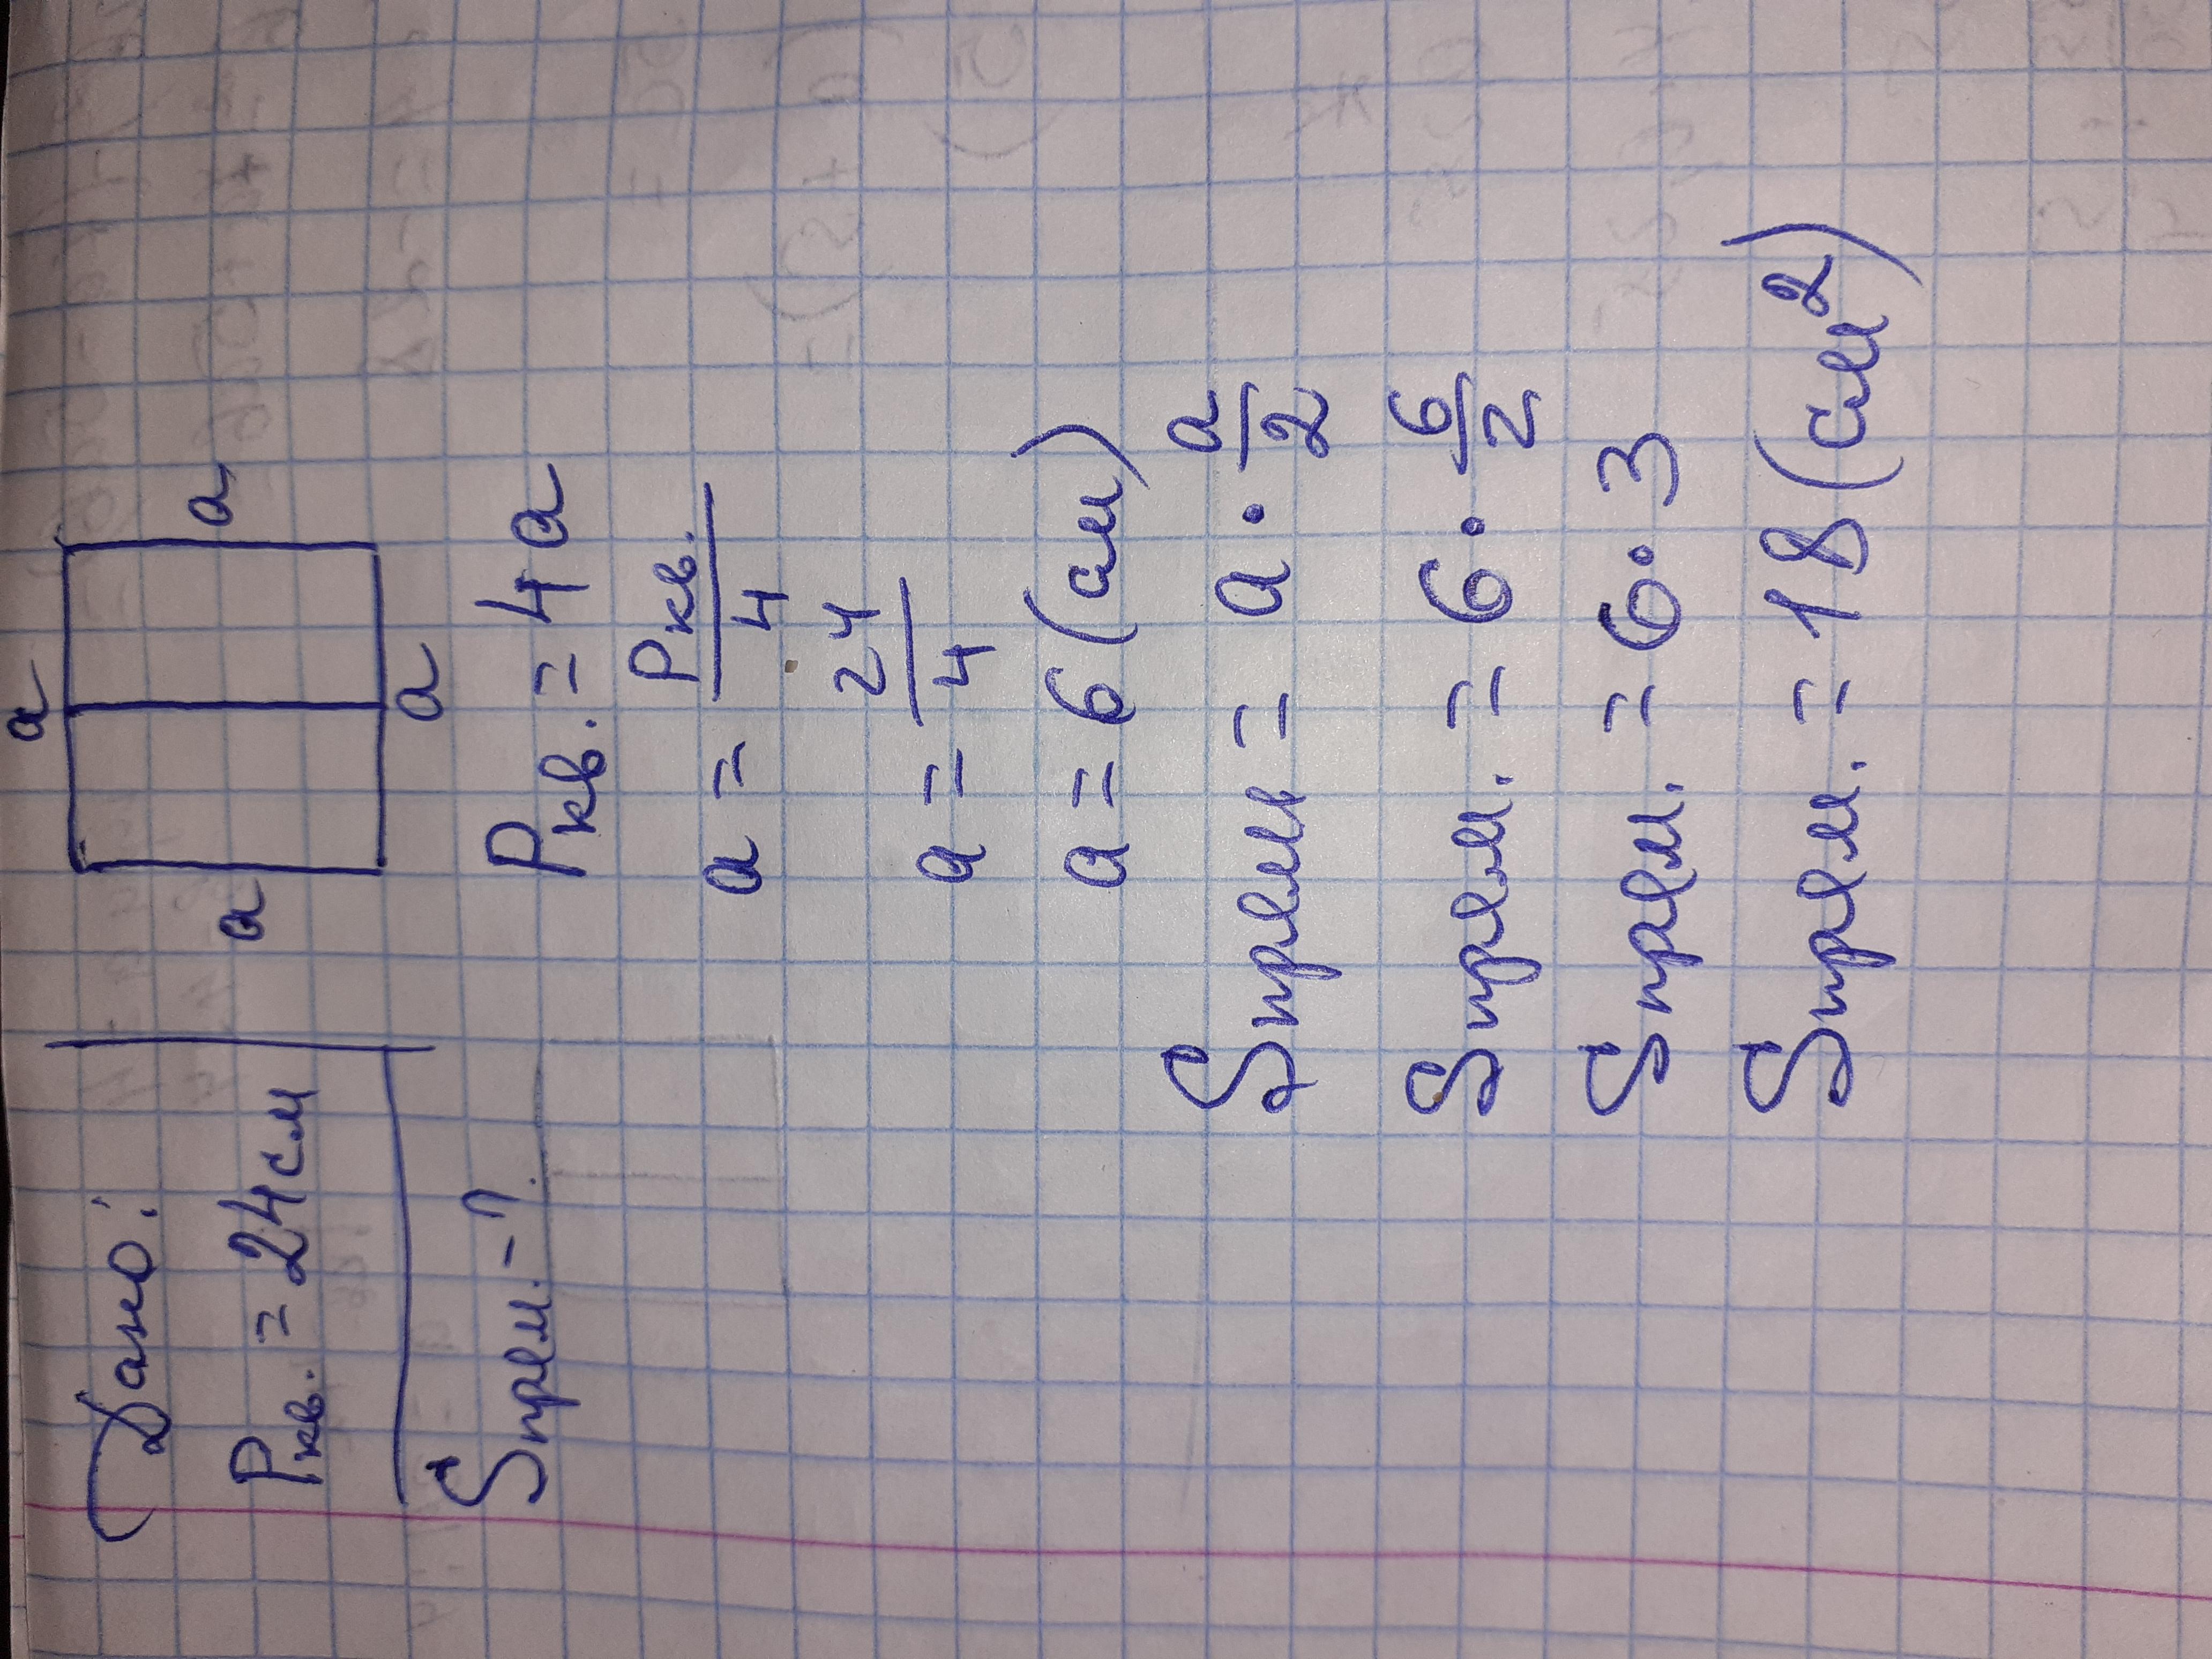 Дано:
Pкв. = 24см
Sпрям. - ?
a
a
a
a
Pкв. = 4a
a = Pкв./4
a = 24/4
a = 6 (см)
Sпрям = a · a/2
Sпрям. = 6 · 6/2
Sпрям. = 6 · 3
Sпрям. = 18 (см²)